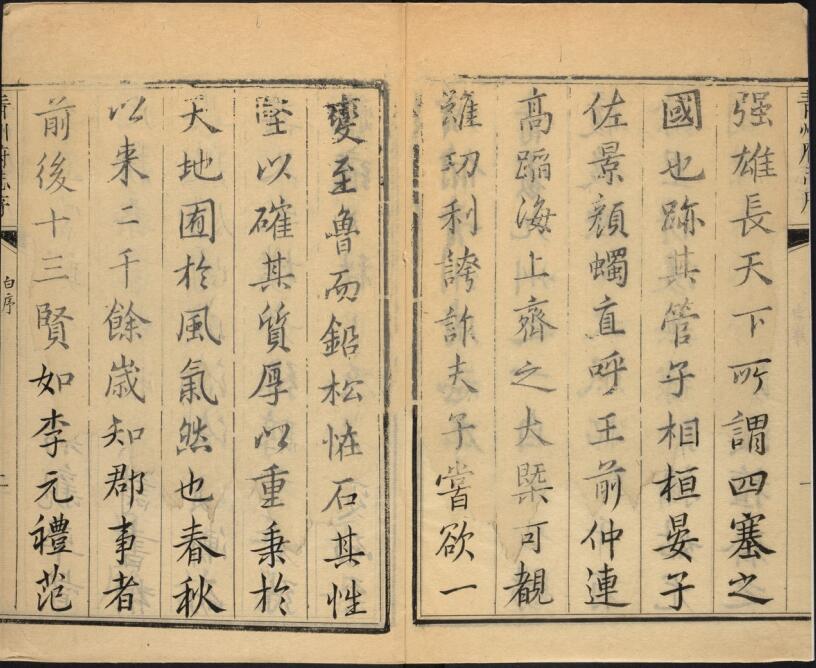 强雄長天下所謂四塞之
國也跡其管子相桓晏子
佐景顔蠋直呼王前仲連
高蹈海上齊之大槩可覩
雖功利誇詐夫子嘗欲一
變至魯而鉛松恠石其性
堅以確其質厚以重秉於
天地囿於風氣然也春秋
以来二千餘歲知郡事者
前後十三賢如李元禮范
青州府志序
白序